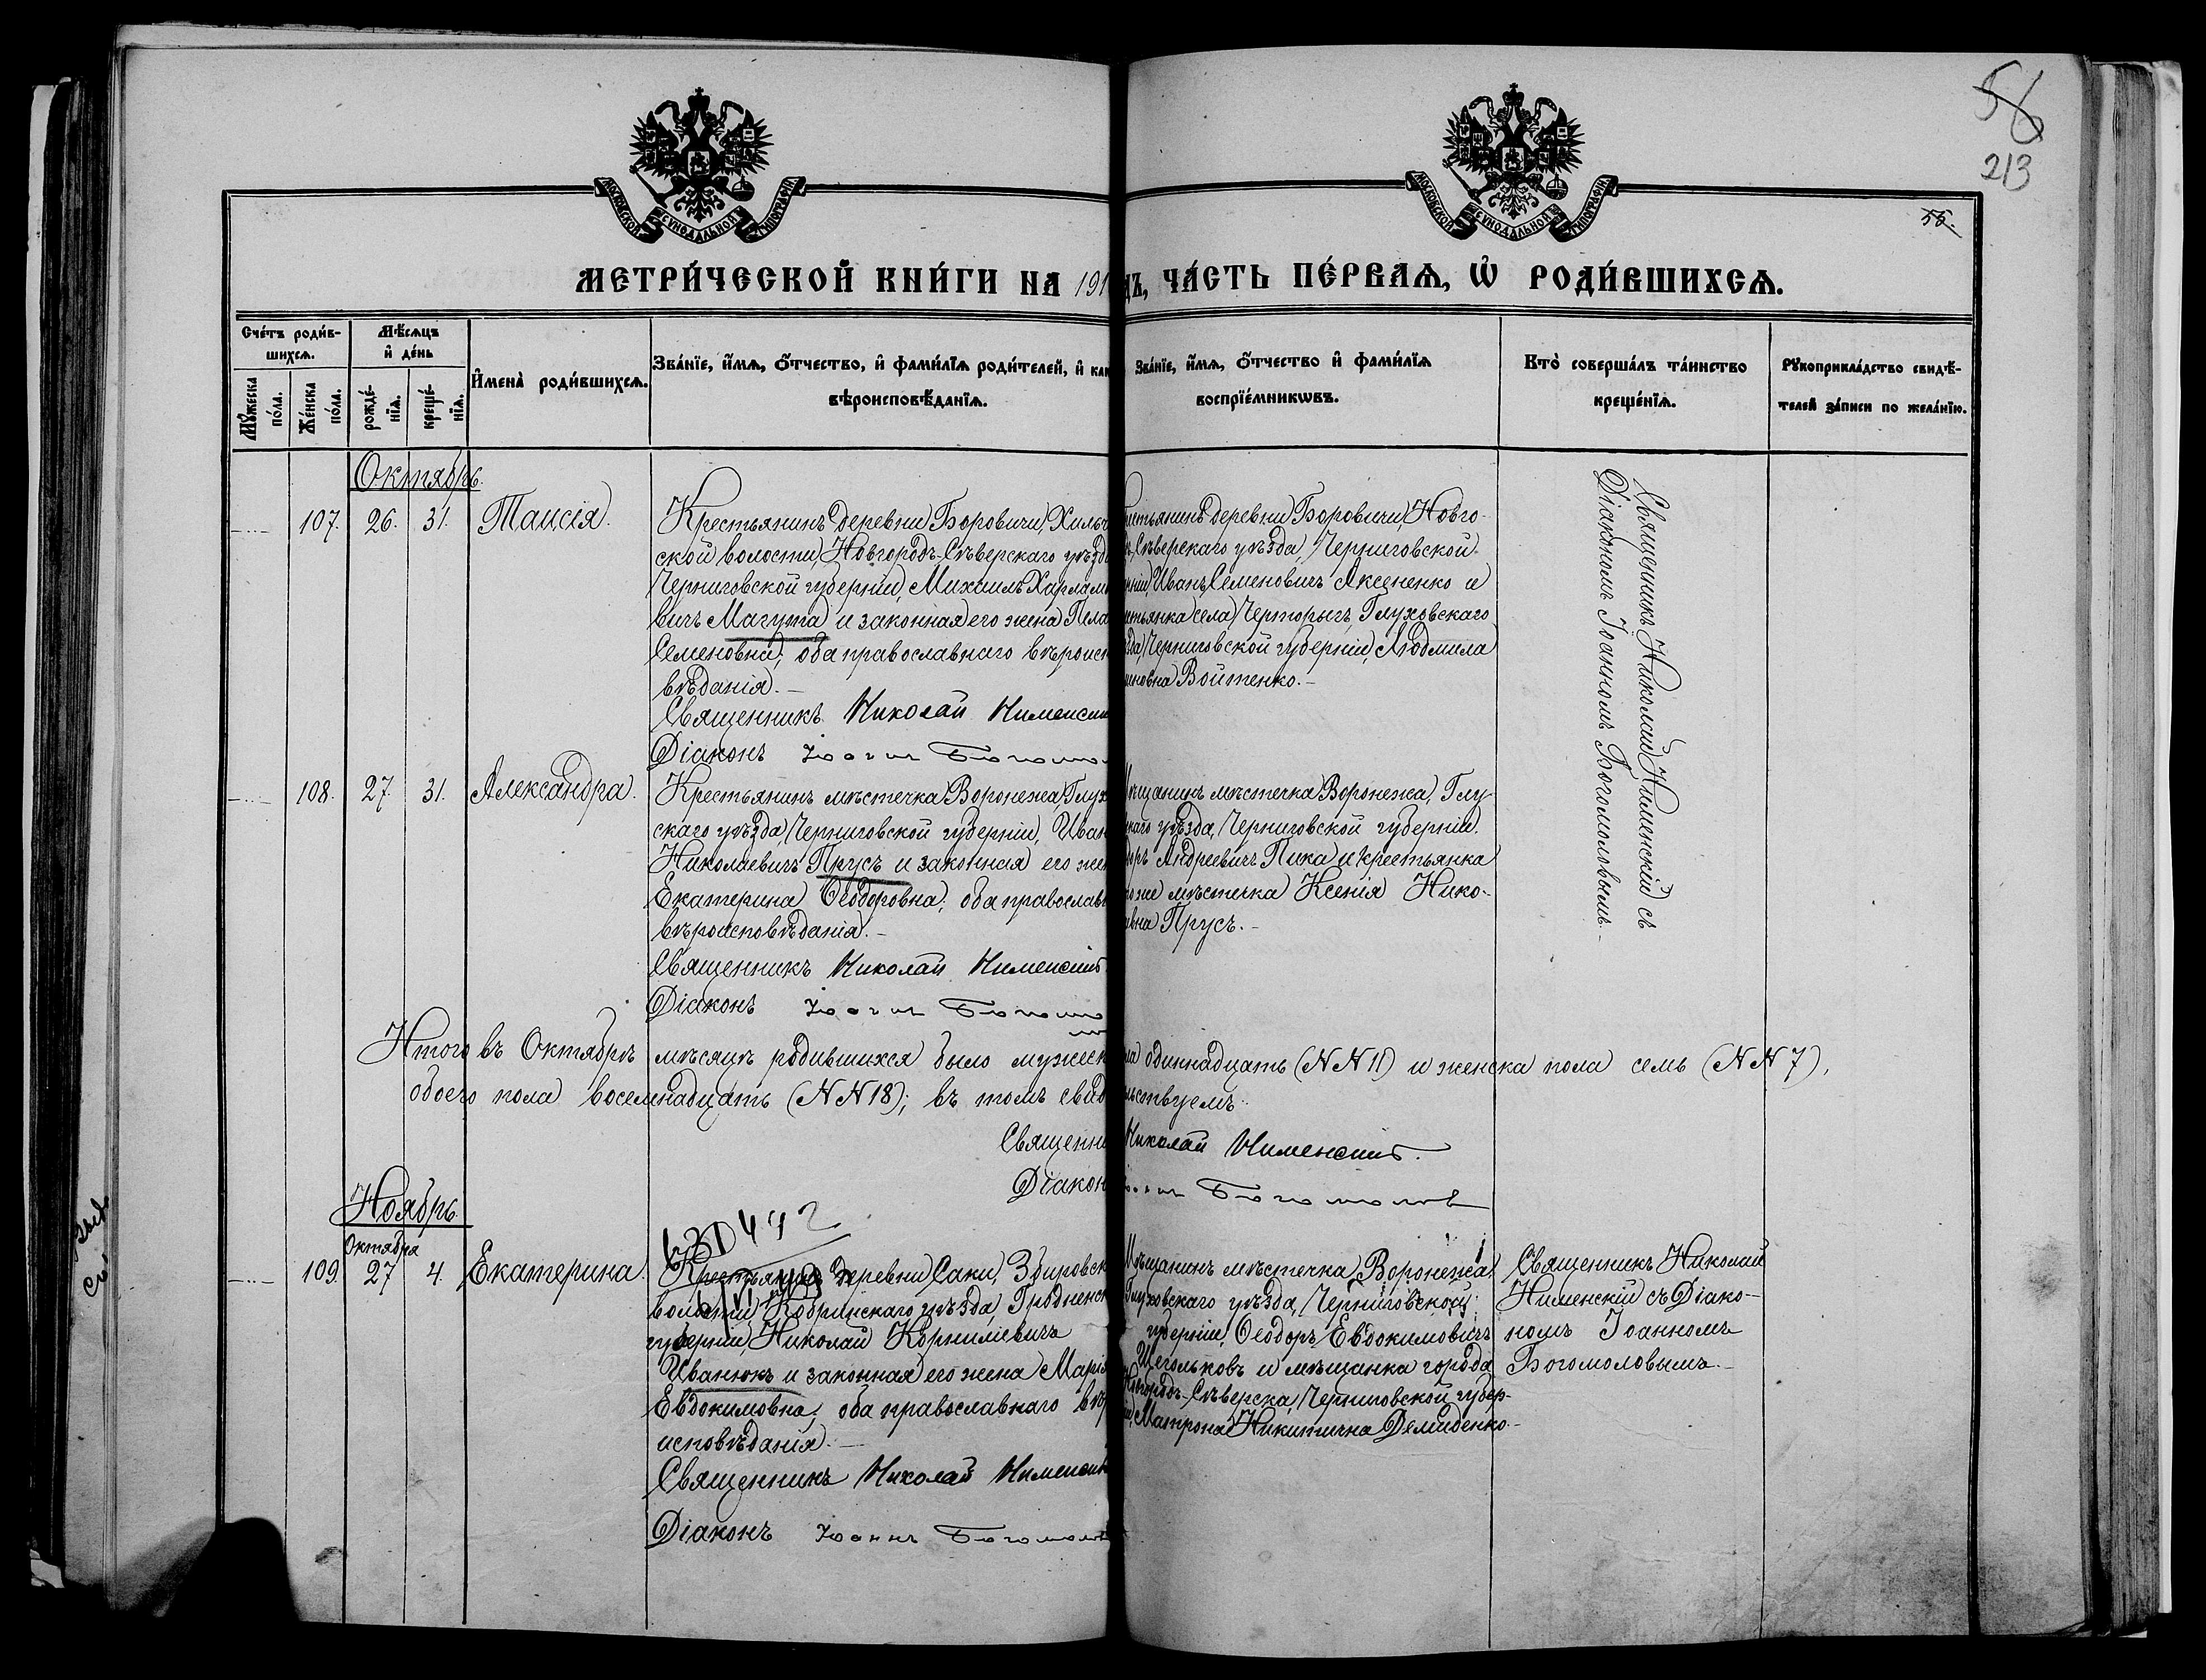 58
213
55.
МОСКОВСКОЙ СѴНОДАЛЬНОЙ ТИПОГРАФІИ
МОСКОВСКОЙ СѴНОДАЛЬНОЙ ТИПОГРАФІИ
МЕТРИ́ЧЕСКОЙ КНИ́ГИ НА 191
дъ, ЧА́СТЬ ПЕ́РВАѦ, Ѡ҆ РОДИ́ВШИХСѦ.
Сче́тъ роди́в-
шихсѧ.
Мꙋ́жеска по́ла.
Же́нска по́ла.
Мѣ́сѧцъ
и҆ де́нь
рожде́-
нїѧ.
креще́-
нїѧ.
И҆мена̀ роди́вшихсѧ.
Зва́нїе, и҆́мѧ, ѻ҆́тчество, и҆ фами́лїѧ роди́телей, и҆ как
вѣроисповѣ́данїѧ.
Зва́нїе, и҆́мѧ, ѻ҆́тчество и҆ фами́лїѧ
воспрїе́мникѡвъ.
Кто̀ соверша́лъ та́инство
креще́нїѧ.
Рꙋкоприкла́дство свидѣ́-
телей за́писи по жела́нїю.
Октябрь.
107. 26. 31. Таисія.
Крестьянинъ деревни Боровичи, Хильч
ской волости, Новгородъ-Сѣверскаго уѣзда
Черниговской губерніи, Михаилъ Харлам
вичъ Магута и законная его жена Пела
Семеновна; оба православнаго вѣроисп
вѣданія.-
Священникъ Николай Нименскій
Діаконъ Іоаннъ Богомол
естьянинъ деревни Боровичи, Новго-
ъ-Сѣверскаго уѣзда, Черниговской
рніи, Иванъ Семеновичъ Аксененко и
стьянка села Черторыгъ, Глуховскаго
зда, Черниговской губерніи, Людмила
меновна Войтенко.-
Священникъ Николай Нименскій съ
Діакономъ Іоанномъ Богомоловымъ.-
108. 27. 31. Александра.
Крестьянинъ мѣстечка Воронежа, Глух
скаго уѣзда, Черниговской губерніи, Иван
Николаевичъ Прусъ и законная его жен
Екатерина Ѳеодоровна; оба православн
вѣроисповѣданія.-
Священникъ Николай Нименскій
Діаконъ Іоаннъ Богомо
Мѣщанинъ мѣстечка Воронежа, Глу-
скаго уѣзда, Черниговской губерніи.
доръ Андреевичъ Пика и крестьянка
того же мѣстечка Ксенія Нико-
евна Прусъ.-
Итого въ Октябрѣ мѣсяцѣ родившихся было мужеск
ла одиннадцать (NN 11) и женска пола семь (NN 7),
обоего пола восемнадцать (NN 18); въ томъ свид
ѣльствуемъ:
Священни
Николай Нименскій.
Діакон
Іоаннъ Богомоловъ
Ноябрь.
Октября
109. 27 4. Екатерина.
Крестьянинъ деревни Саки, Збировск
волости, Кобринскаго уѣзда, Гродненск
губерніи, Николай Корниліевичъ
Иванюкъ и законная его жена Марія
Евдокимовна; оба православнаго вѣр
исповѣданія.-
Священникъ Николай Нименскій
Діаконъ Іоаннъ Богомолов
Мѣщанинъ мѣстечка Воронежа,
Глуховскаго уѣзда, Черниговской
губерніи, Ѳеодоръ Евдокимовичъ
Щегольковъ и мѣщанка города
Новгородъ-Сѣверска, Черниговской губер-
ніи, Матрона Никитична Демиденко.-
Священникъ Николай
Нименскій съ Діако-
номъ Іоанномъ
Богомоловымъ.-